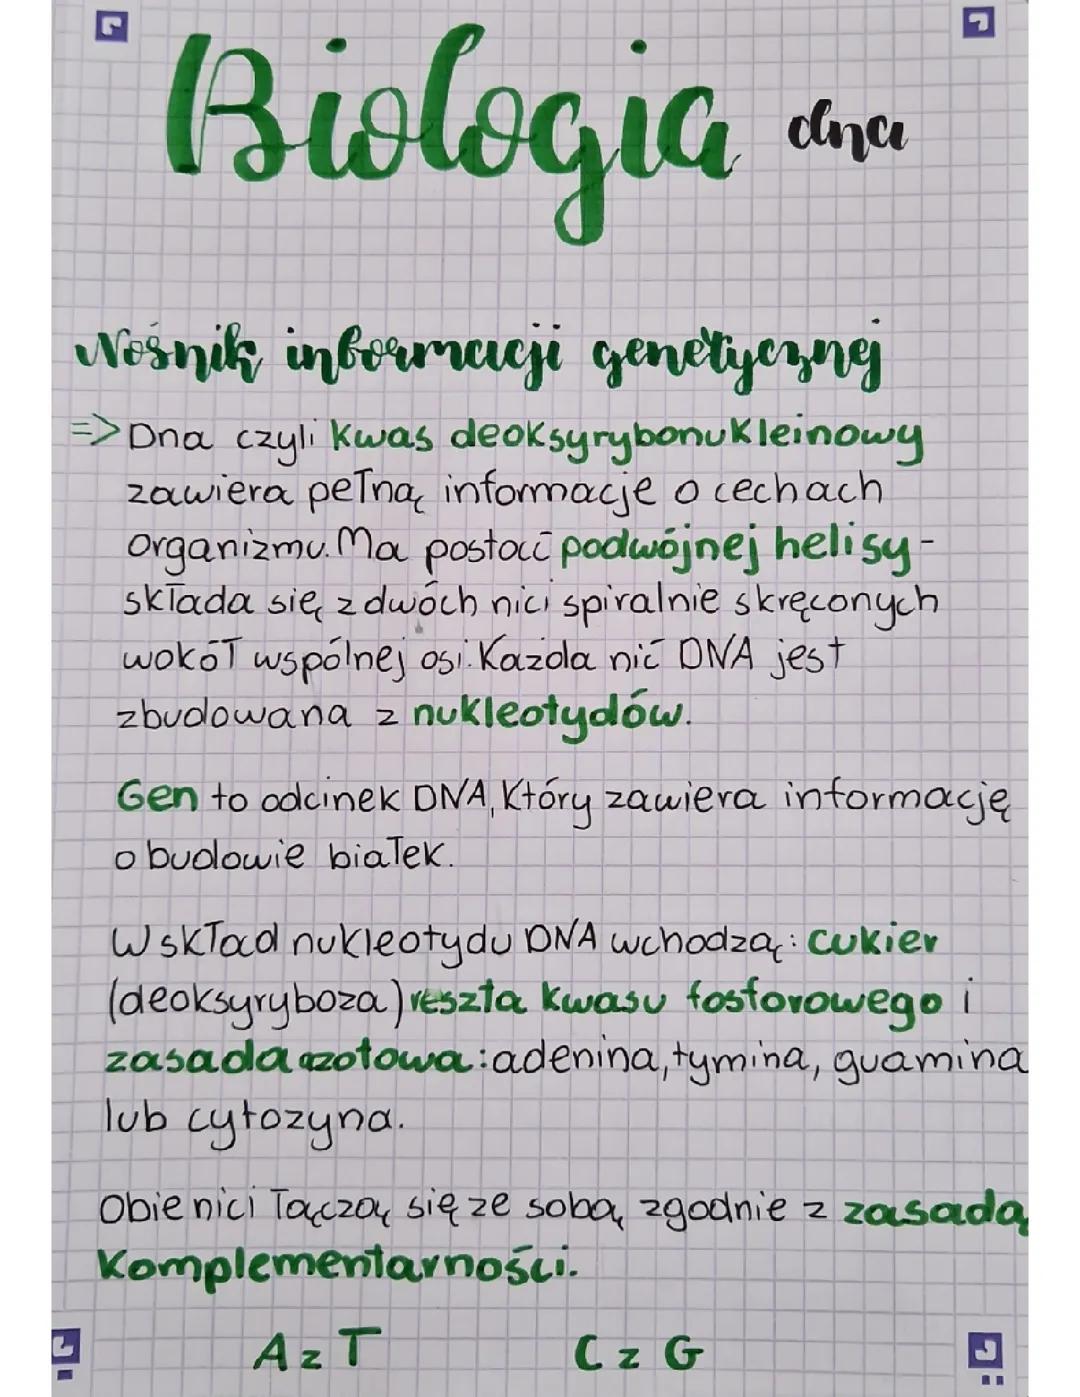 Biologia dna
Nośnik informacji genetycznej
=> Dna czyli kwas deoksyrybonukleinowy
zawiera pełną informacje o cechach
organizmu. Ma postać podwójnej helisy -
składa się z dwóch nici spiralnie skręconych
wokół wspólnej osi. Każda nić DNA jest
zbudowana z nukleotydów.
Gen to odcinek DNA, który zawiera informację
o budowie białek.
W skład nukleotydu DNA wchodzą: cukier
(deoksyryboza) reszta kwasu fosforowego i
zasada azotowa: adenina, tymina, guamina
lub cytozyna.
Obie nici łączą się ze sobą zgodnie z zasadą
komplementarności.
A z T C z G